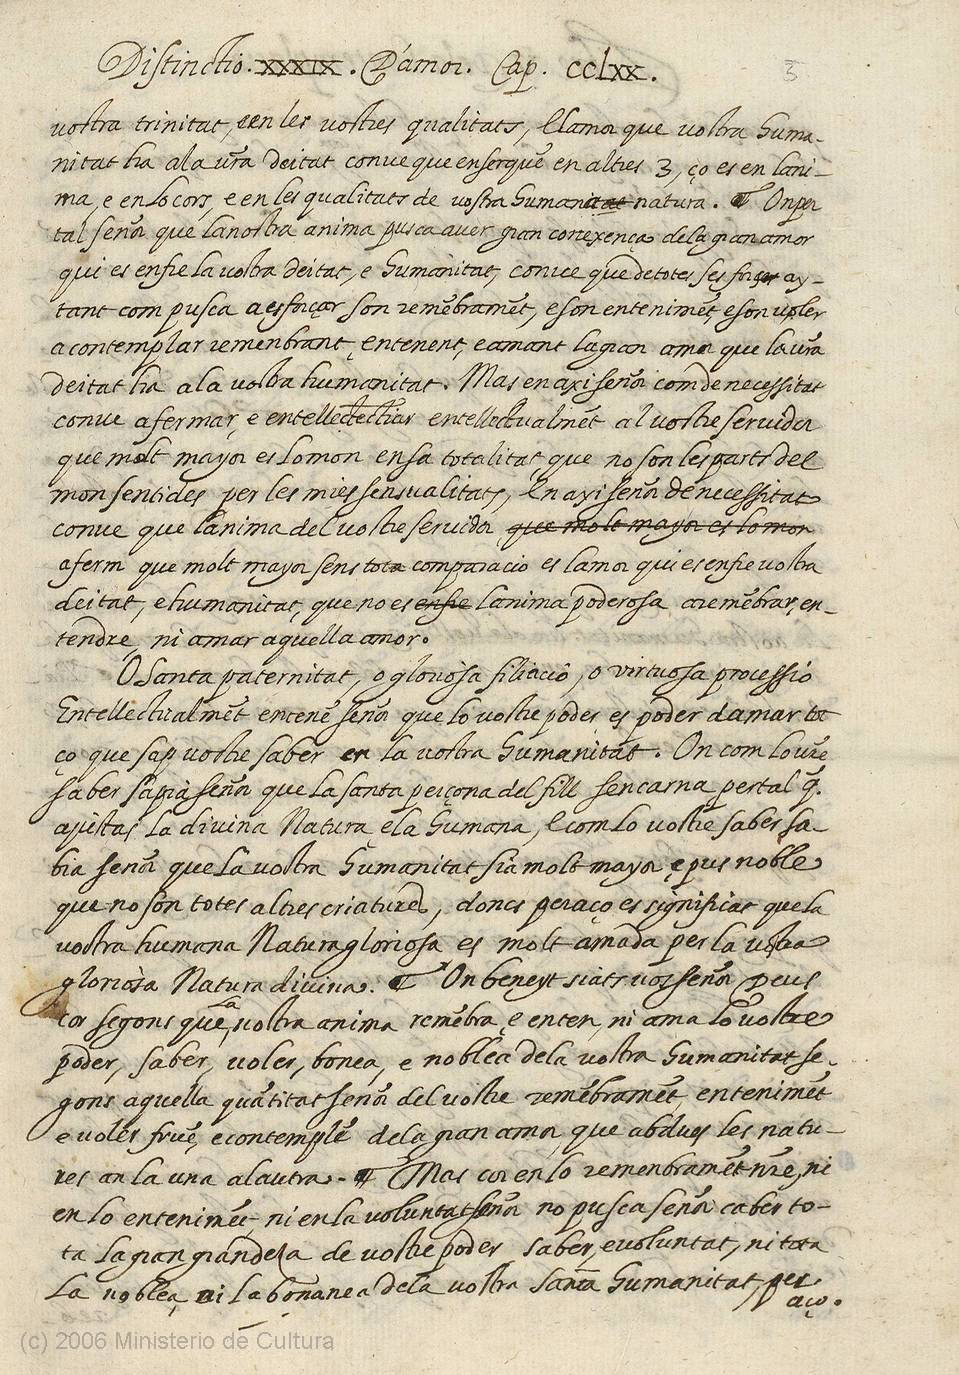 Distinctio. XXXIX. D'amor. Cap. CCLXX.
3
vostra trinitat, e en les vostres qualitats, E lamor que vostra Huma-
nitat ha ala vr̃a deitat conve que en serque en altres 3, ço es en lani-
ma, e en lo cors, e en les qualitats de vostra Humanitat natura. ¶ On per
tal señor que la nostra anima pusca aver gran conexença dela gran amor
qui es enfre la vostra deitat, e Humanitat, conve que de totes ses forçes ay-
tant com pusca a esforçar son remẽbramẽt, e son entenimẽt, e son voler
a contemplar remenbrant, entenent, e amant la gran amor que la vr̃a
deitat ha a la vostra humanitat. Mas en axi señor com de necessitat
conve afermar, e entellectectuar entellectualmẽt al vostre servidor
que molt mayor es lo mon en sa totalitat que no son les parts del
mon sentides per les mies sensualitats, En axi señor de necessitat
conve que lanima del vostre servidor que molt mayor es lo mon
aferm que molt mayor sens tota comparacio es lamor qui es enfre vostra
deitat, e humanitat, que no es enfre lanima poderosa a remẽbrar, en-
tendre, ni amar aquella amor.
O Santa paternitat, o gloriosa filiació, o virtuosa processió
Entellectualmẽt entenẽ señor que lo vostre poder es poder d amar tot
ço que sap vostre saber en la vostra Humanitat. On com lo vr̃e
saber sapia señor que la santa perçona del fill sencarna per tal q̃.
ajustas la divina Natura e la Humana, E com lo vostre saber sa-
bia señor que la vostra Humanitat sia molt mayor e pus noble
que no son totes altres criatures, doncs per aço es significat que la
vostra humana Natura gloriosa es molt amada per la vostra
gloriosa Natura divina. ¶ On beneyt siats vos señor Deus
cor segons que la vostra anima remẽbra, e enten, ni ama lo vostre
poder, saber, voler, bonea, e noblea dela vostra Humanitat se-
gons aquella quãtitat señor del vostre remẽbramẽt, entenimẽt
e voler fruẽ, e contemplẽ dela gran amor que abdues les natu-
res an la una alautra. ¶ Mas cor en lo remenbramẽt nr̃e, ni
en lo entenimẽt ni en la voluntat señor no pusca señor caber to-
ta la gran grandesa de vostre poder saber, e voluntat, ni tota
la noblea, ni la bonanea dela vostra santa Humanitat, per
aço.
(c) 2006 Ministerio de Cultura